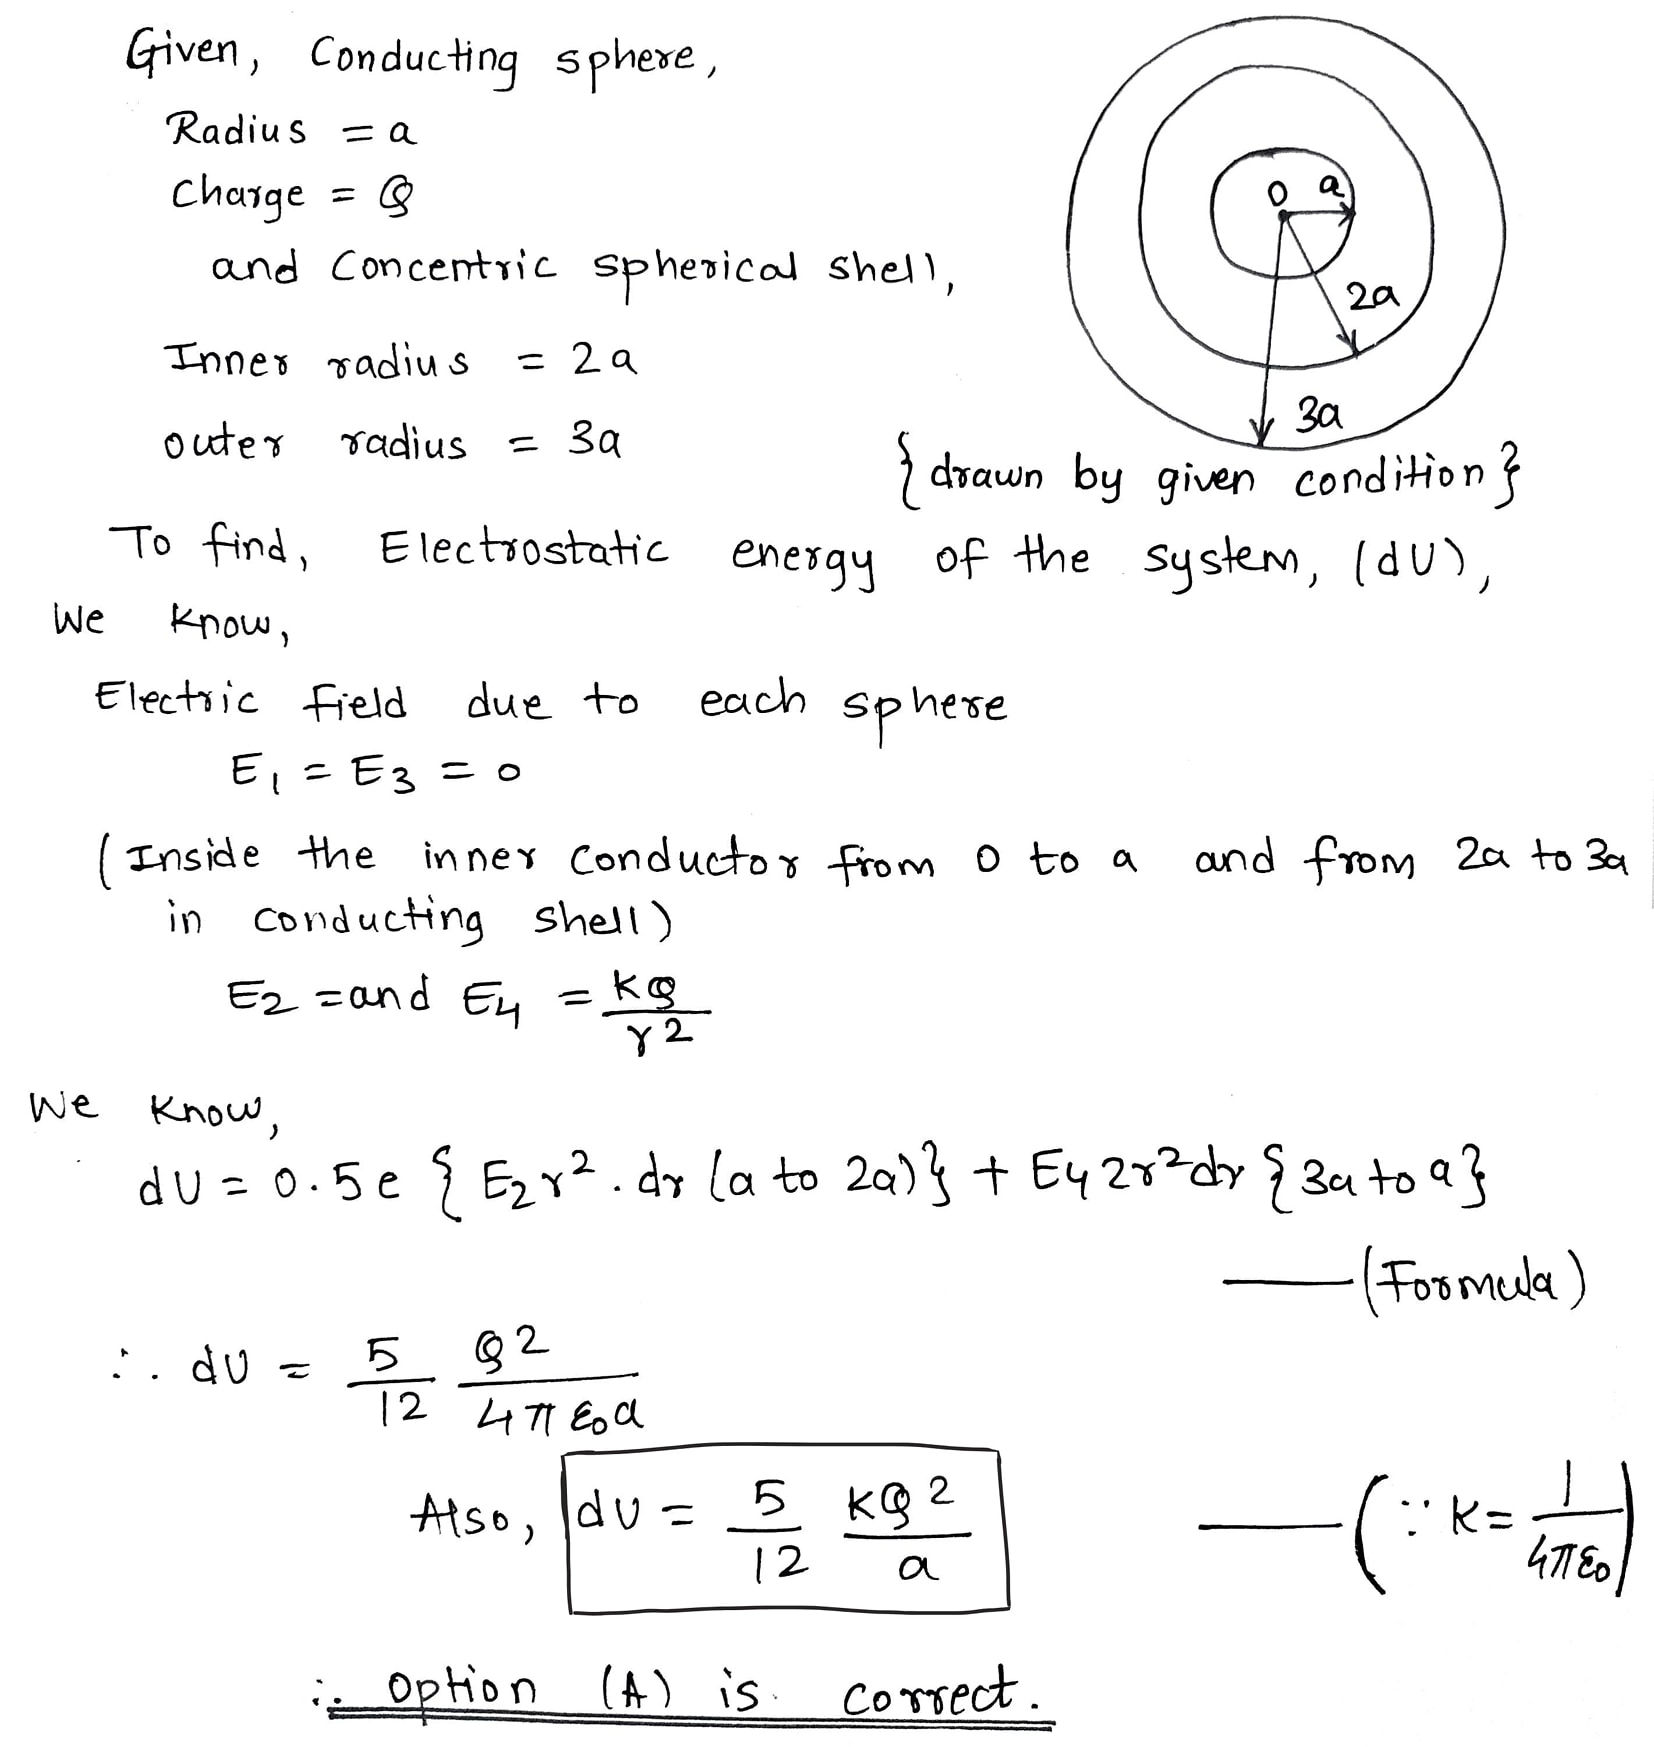 Given, Conducting sphere,
Radius = a
Charge = Q
and Concentric spherical shell,
Inner radius = 2a
outer radius = 3a
O a
2a
3a
{drawn by given condition}
To find, Electrostatic energy of the system, (dU),
We know,
Electric field due to each sphere
E1 = E3 = 0
(Inside the inner conductor from 0 to a and from 2a to 3a
in conducting shell)
E2 = and E4 = KQ/r2
We know,
dU = 0.5e {E2r2.dr (a to 2a)} + E42r2dr {3a to a}
—(Formula)
∴ dU = 5/12 Q2/4πε0a
Also, dU = 5/12 KQ2/a —(∵ K = 1/4πε0)
∴ option (A) is correct.